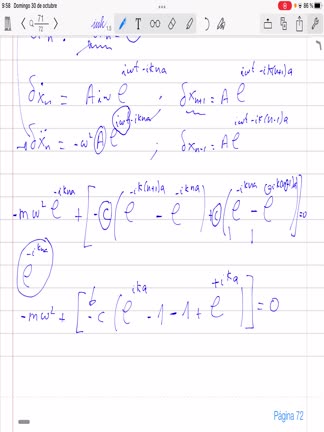 9:58 Domingo 30 de octubre 86 %
71
72
δẋn = A iω e^{iωt-ikna} , δx_{n+1} = A e^{iωt-ik(n+1)a}
→ δẍn = -ω² A e^{iωt-ikna} ; δx_{n-1} = A e^{iωt-ik(n-1)a}
-mω² e^{-ikna} + [ -C ( e^{-ik(n+1)a} - e^{-ikna} ) + C ( e^{-ikna} - e^{
)] = 0
e^{-ikna}
-mω² + [ -c ( e^{ika} - 1 - 1 + e^{+ika} ) ] = 0
Página 72